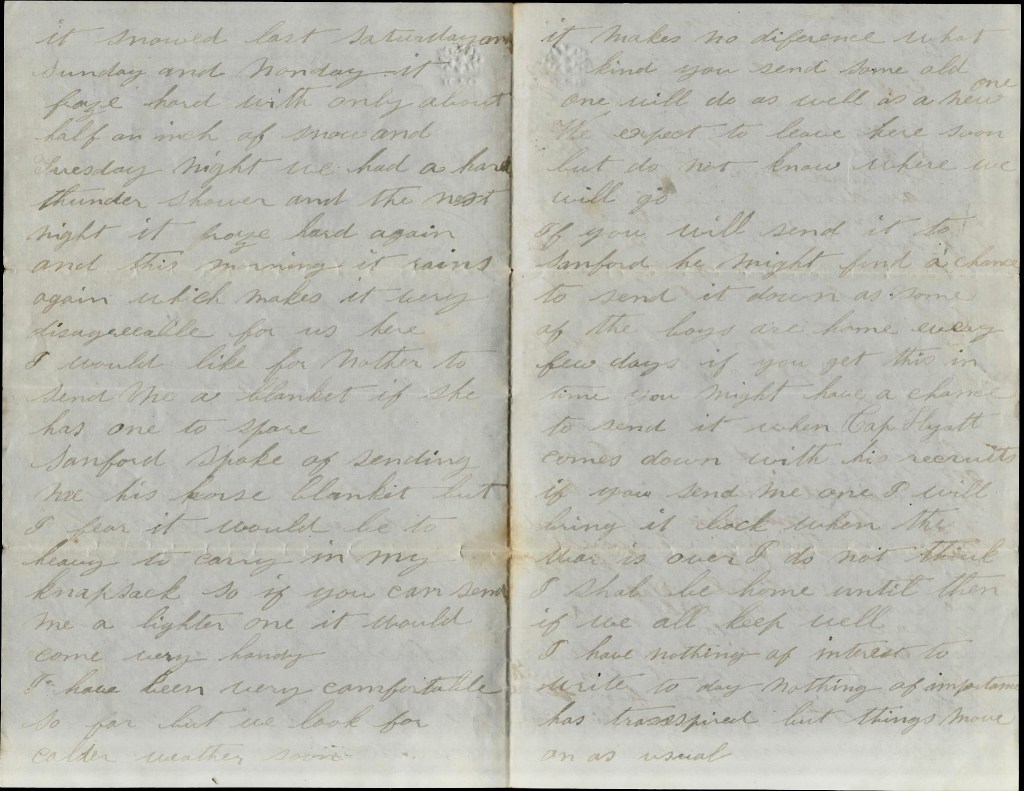 it snowed last Saturday on
Sunday and Monday it
froze hard with only about
half an inch of snow and
Tuesday night we had a hard
thunder shower and the next
night it froze hard again
and this morning it rains
again which makes it very
disagreeable for us here
I would like for Mother to
send me a blanket if she
has one to spare
Sanford spoke of sending
me his horse blanket but
I fear it would be to
heavy to carry in my
knapsack so if you can send
me a lighter one it would
come very handy
I have been very comfortable
so far but we look for
colder weather soon
it makes no diference what
kind you send some old
one will do as well as a new one
We expect to leave here soon
but do not know where we
will go
If you will send it to
Sanford he might find a chance
to send it down as some
of the boys are home every
few days if you get this in
time you might have a chance
to send it when Cap Hyatt
comes down with his recruits
if you send me one I will
bring it back when the
War is over I do not think
I shal be home until then
if we all keep well
I have nothing of interest to
write to day nothing of importance
has transpired but things move
on as usual